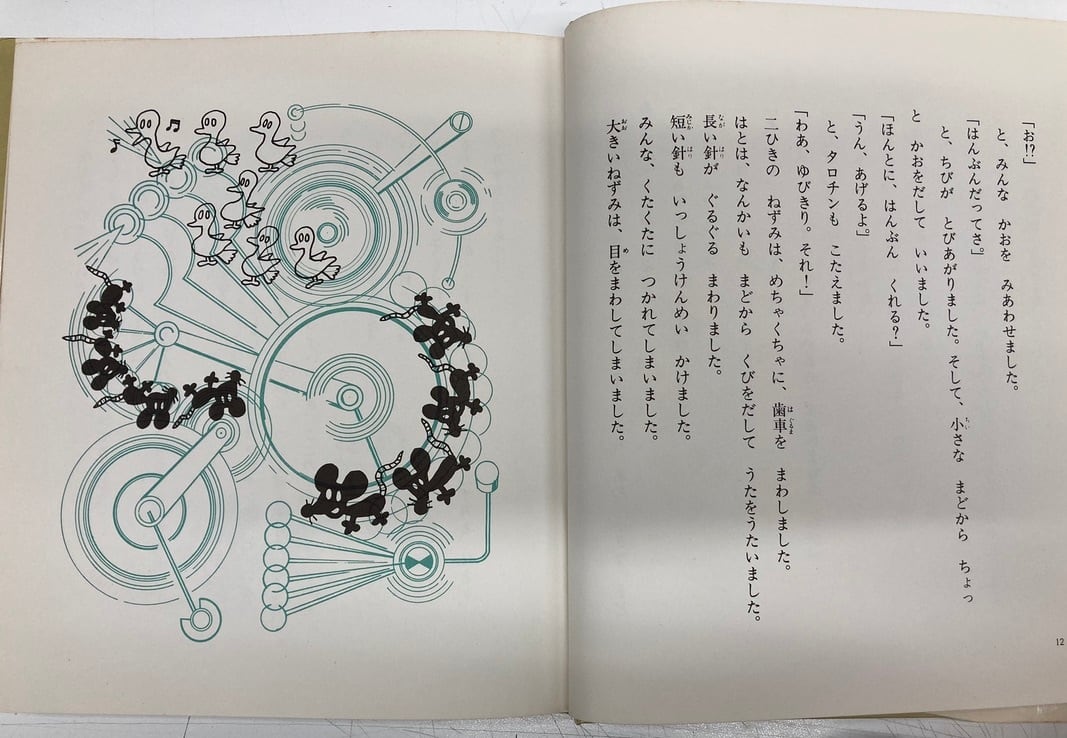 「お!?」
と、みんな かおを みあわせました。
「はんぶんだってさ。」
と、ちびが とびあがりました。そして、小さな まどから ちょっ
と かおをだして いいました。
「ほんとに、はんぶん くれる?」
「うん、あげるよ。」
と、タロチンも こたえました。
「わあ、ゆびきり。それ!」
二ひきの ねずみは、めちゃくちゃに、歯車を まわしました。
はとは、なんかいも まどから くびをだして うたをうたいました。
長い針が ぐるぐる まわりました。
短い針も いっしょうけんめい かけました。
みんな、くたくたに つかれてしまいました。
大きいねずみは、目をまわしてしまいました。
12